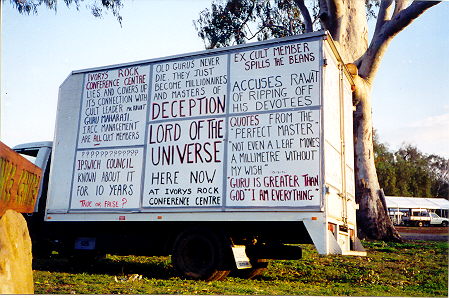 IVORYS ROCK
CONFERENCE CENTRE
LIES AND COVERS UP
ITS CONNECTION WITH
CULT LEADER
GURU MAHARAJI.
I.R.C.C MANAGEMENT
ARE ALL CULT MEMBERS
IPSWICH COUNCIL
KNOWN ABOUT
IT FOR 10 YEARS
TRUE OR FALSE?
OLD GURUS NEVER
DIE, THEY JUST
BECOME MILLIONAIRES
AND MASTERS OF
DECEPTION
LORD OF THE
UNIVERSE
HERE NOW
AT IVORYS ROCK
CONFERENCE CENTRE
EX CULT MEMBER
SPILLS THE BEANS
ACCUSES RAWAT
OF RIPPING OFF
HIS DEVOTEES
QUOTES FROM THE
"PERFECT MASTER"
"NOT EVEN A LEAF MOVES
A MILLIMETRE WITHOUT
MY WISH"
"GURU IS GREATER THAN
GOD" "I AM EVERYTHING"